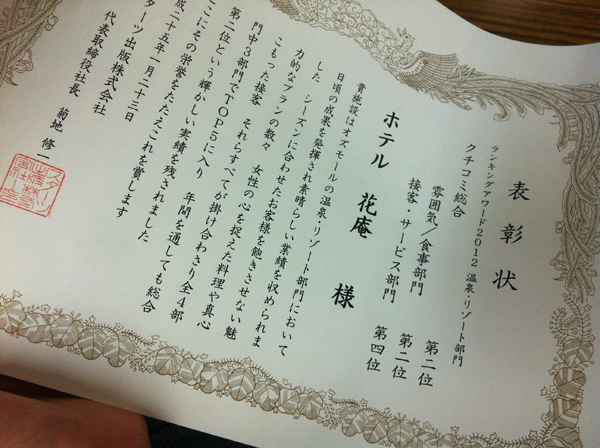 表彰状
ランキングアワード2012 温泉・リゾート部門
クチコミ総合 第二位
雰囲気/食事部門 第二位
接客・サービス部門 第四位
ホテル 花庵 様
貴施設はオズモールの温泉・リゾート部門において
日頃の成果を発揮され素晴らしい業績を収められま
した シーズンに合わせたお客様を飽きさせない魅
力的なプランの数々 女性の心を捉えた料理や真心
こもった接客 それらすべてが掛け合わさり全4部
門中3部門でTOP5に入り 年間を通しても総合
第二位という輝かしい実績を残されました
ここにその栄誉をたたえこれを賞します
成二十五年一月二十三日
ターツ出版株式会社
代表取締役社長 菊地 修一